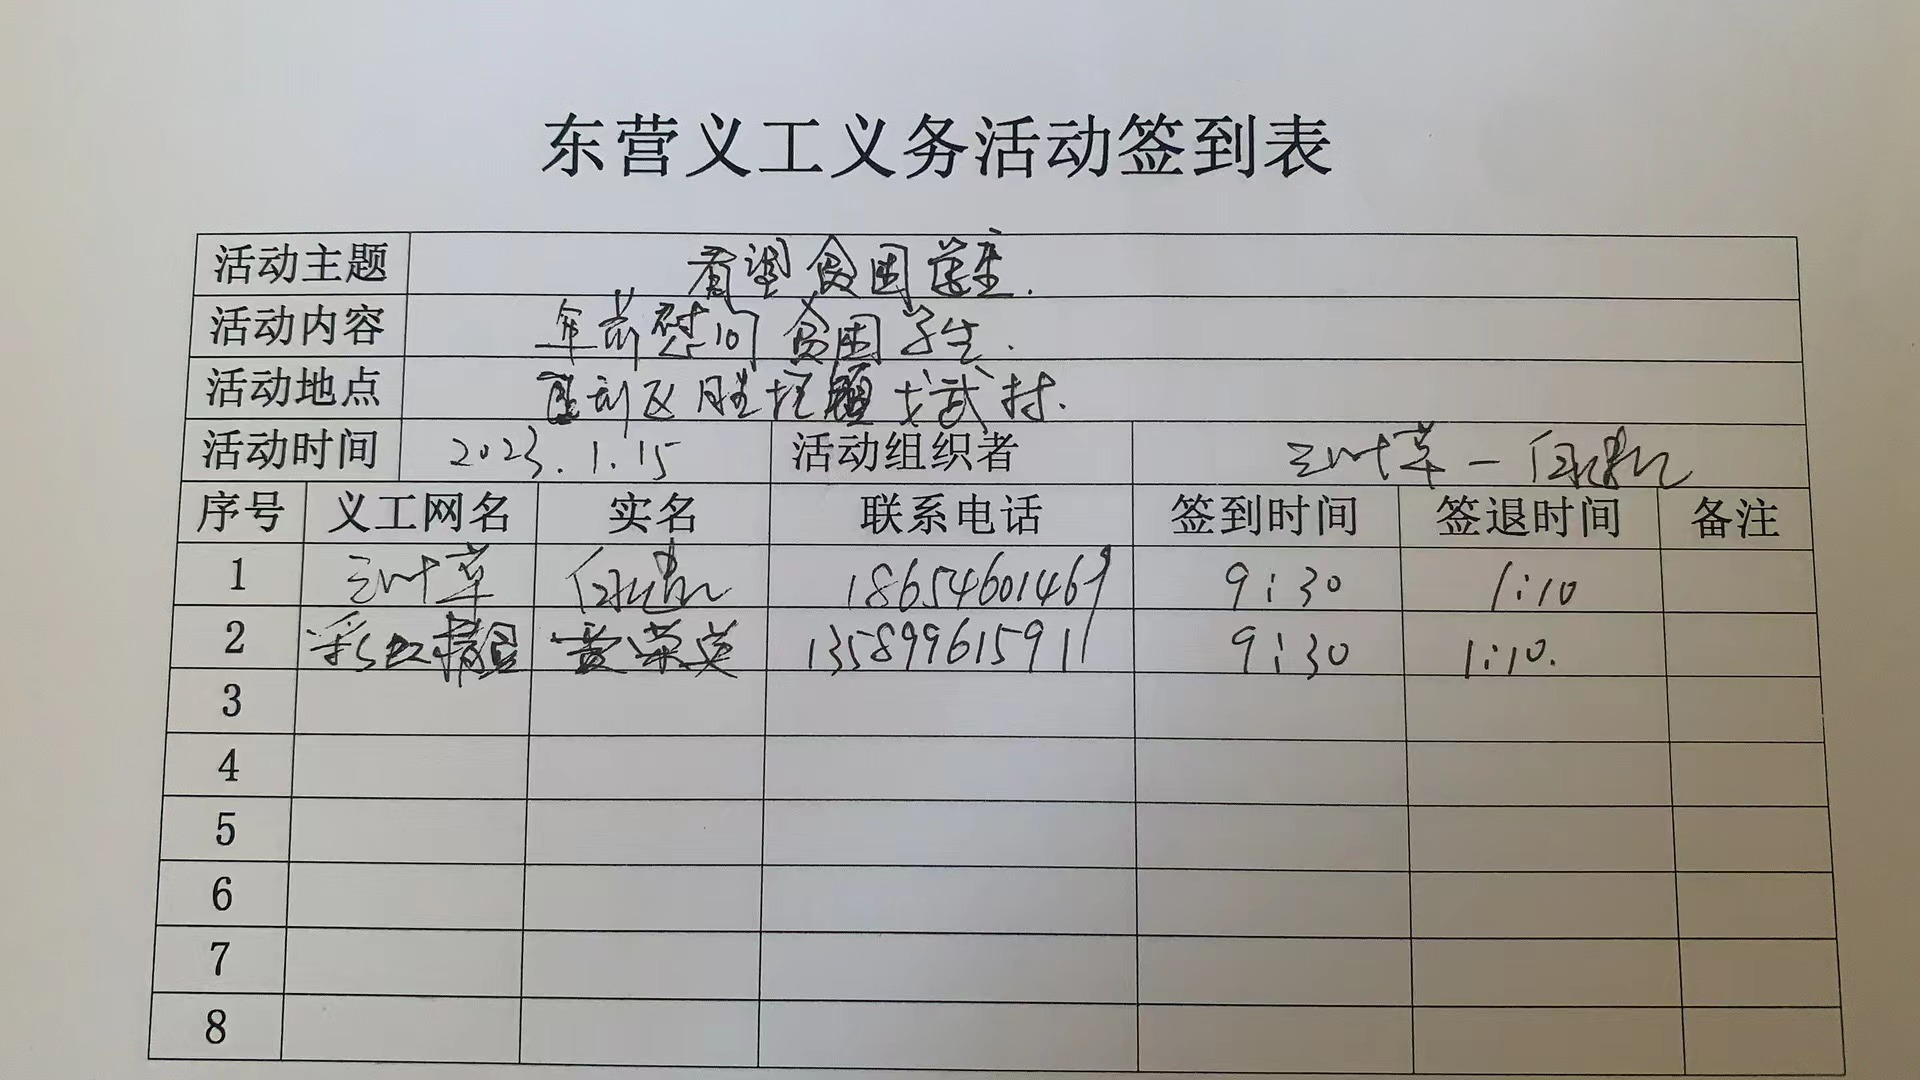 东营义工义务活动签到表
活动主题 看望贫困
活动内容 年前慰问贫困学生.
活动地点 垦利区胜坨镇戈武村.
活动时间 2023.1.15 活动组织者 三叶草一
序号 义工网名 实名 联系电话 签到时间 签退时间 备注
1 三叶草 18654601469 9:30 1:10
2 彩虹 荣英 13589961591 9:30 1:10.
3
4
5
6
7
8